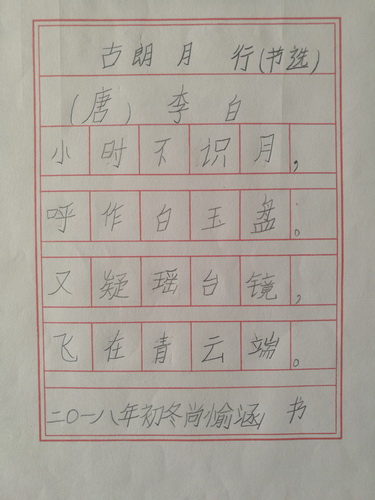 古朗月 行(节选)
(唐) 李白
小时不识月,
呼作白玉盘。
又疑瑶台镜,
飞在青云端。
二〇一八年初冬尚愉涵 书